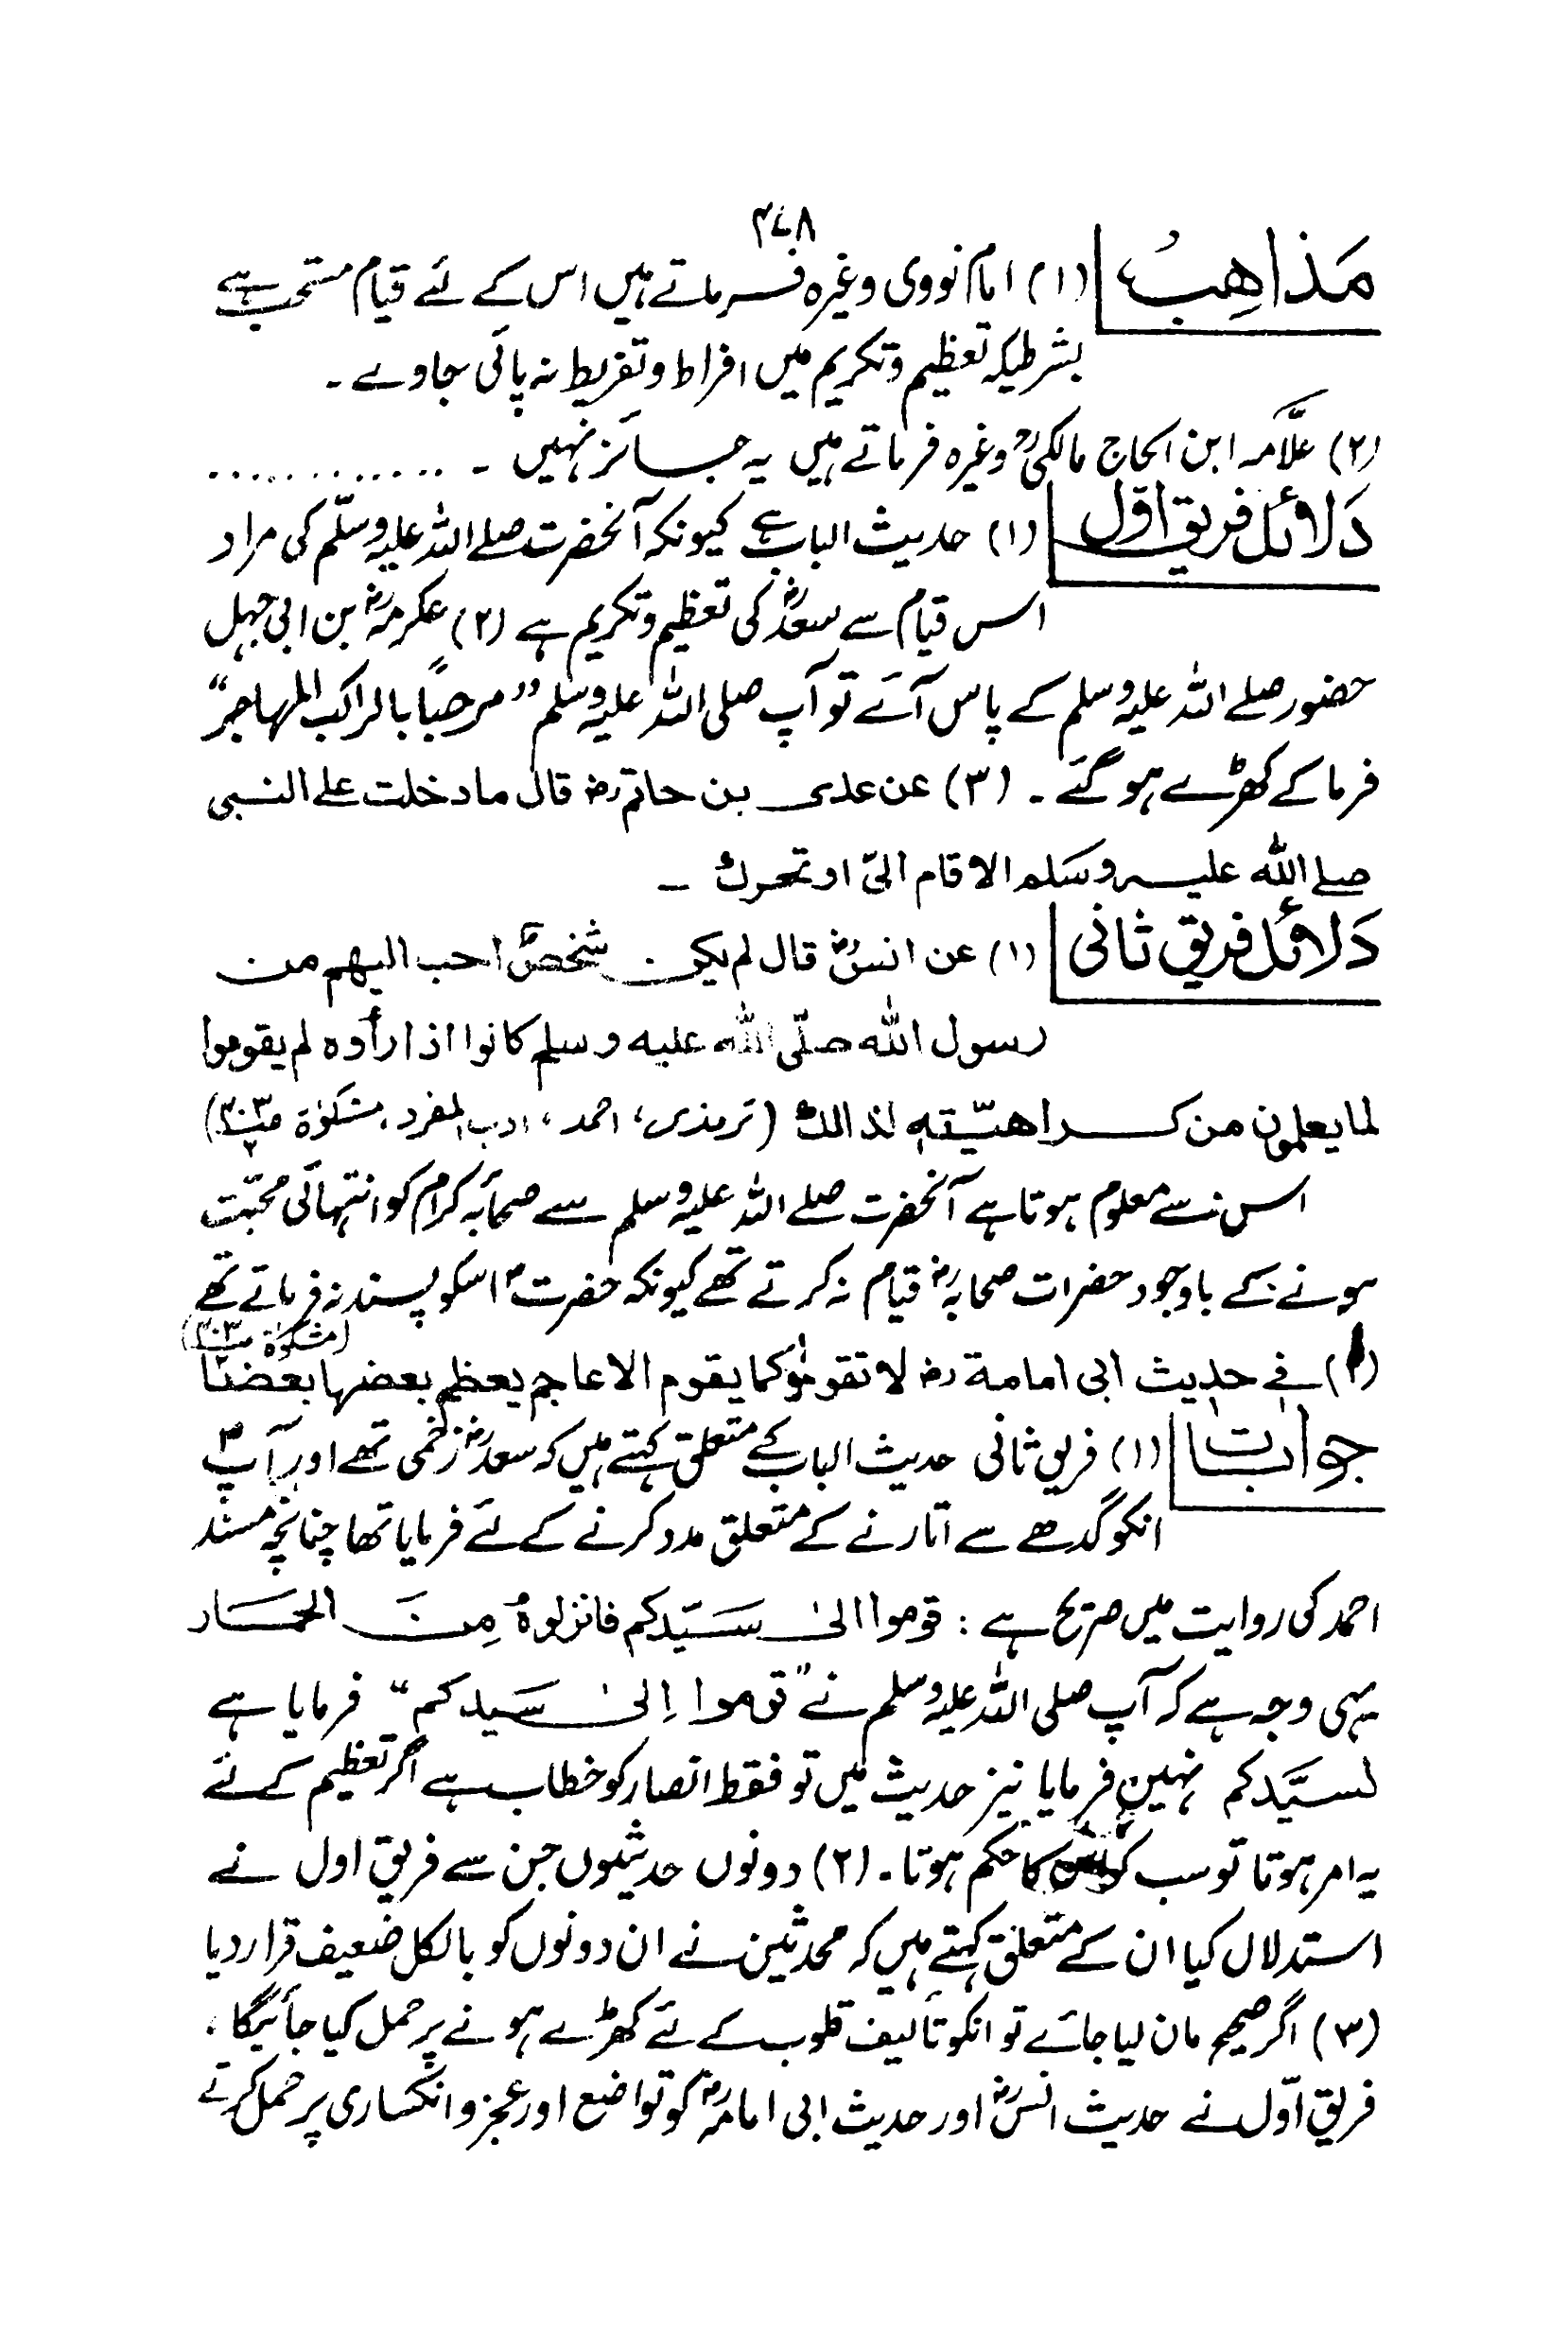 ۴۷۸
مَذاهِبُ (۱) امام نووی وغیرہ فرماتے ہیں اس کے لئے قیام مستحب ہے
بشرطیکہ تعظیم وتکریم میں افراط وتفریط نہ پائی جاوے ۔
(۲) علّامہ ابن الحاج مالکیؒ وغیرہ فرماتے ہیں یہ جائز نہیں ۔ ............
دَلائل فریق اوّل (۱) حدیث الباب ہے کیونکہ آنحضرت صلے اللہ علیہ وسلّم کی مراد
اس قیام سے سعدؓ کی تعظیم وتکریم ہے (۲) عکرمہؓ بن ابی جہل
حضور صلے اللہ علیہ وسلم کے پاس آئے تو آپ صلی اللہ علیہ وسلم ”مرحبًا بالراکب المهاجر“
فرما کے کھڑے ہو گئے ۔ (۳) عن عدی بن حاتم رضؓ قال ما دخلت علے النبی
صلے الله علیہ وسَلم الا قام الیّ او تحرك ۔
دَلائل فریق ثانی (۱) عن انسؓ قال لم یکن شخصٌ احب الیهم من
رسول الله صلّی الله علیه وسلم کانوا اذا رأوه لم یقوموا
لما یعلمون من کراهیّته لذالك (ترمذی، احمد، ادب المفرد، مشکوٰۃ ص۴۰۳ ۲)
اس سے معلوم ہوتا ہے آنحضرت صلے اللہ علیہ وسلم سے صحابۂ کرام کو انتہائی محبّت
ہونے کے باوجود حضرات صحابہؓ قیام نہ کرتے تھے کیونکہ حضرتؐ اسکو پسند نہ فرماتے تھے
(مشکوٰۃ ص۴۰۳ ۲)
(۲) فی حدیث ابی امامة رضؓ لا تقوموا کما یقوم الاعاجم یعظم بعضها بعضًا
جوابات (۱) فریق ثانی حدیث الباب کے متعلق کہتے ہیں کہ سعدؓ زخمی تھے اور آپؐ
انکو گدھے سے اتارنے کے متعلق مدد کرنے کے لئے فرمایا تھا چنانچہ مسند
احمد کی روایت میں صریح ہے : قوموا الیٰ سَیّدکم فانزلوهُ مِنَ الحمَار
یہی وجہ ہے کہ آپ صلی اللہ علیہ وسلم نے ”قوموا اِلیٰ سَیدکم“ فرمایا ہے
لسیَّدکم نہیں فرمایا نیز حدیث میں تو فقط انصار کو خطاب ہے اگر تعظیم کے لئے
یہ امر ہوتا تو سب کو اس کا حکم ہوتا ۔ (۲) دونوں حدیثوں جن سے فریق اول نے
استدلال کیا ان کے متعلق کہتے ہیں کہ محدثین نے ان دونوں کو بالکل ضعیف قرار دیا
(۳) اگر صحیح مان لیا جائے تو انکو تألیف قلوب کے لئے کھڑے ہونے پر حمل کیا جائیگا ،
فریق اوّل نے حدیث انسؓ اور حدیث ابی امامہؓ کو تواضع اور عجز وانکساری پر حمل کرتے